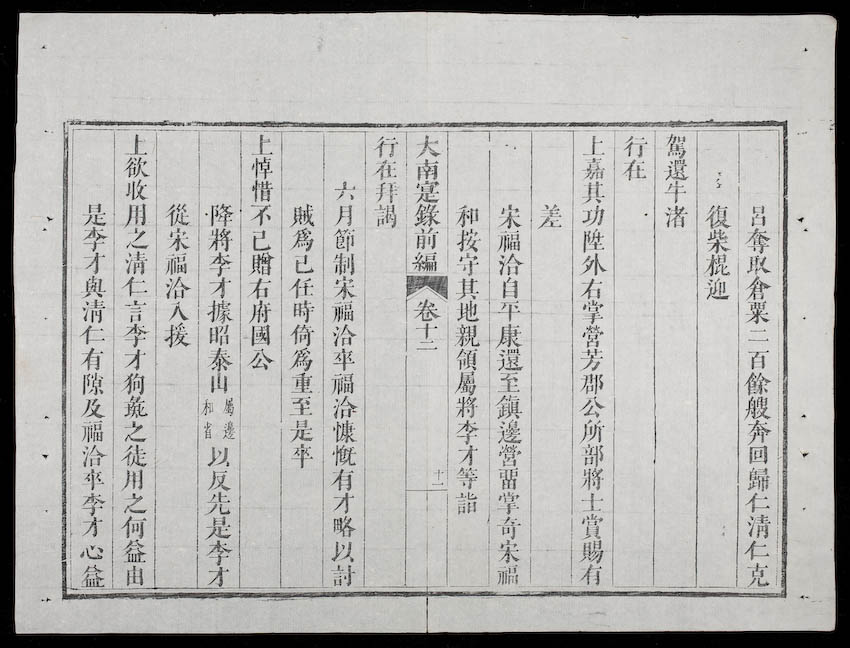 呂奪取倉粟二百餘艘奔回歸仁清仁克
復柴棍迎
駕還牛渚
行在
上嘉其功陞外右掌營芳郡公所部將士賞賜有
差
宋福洽自平康還至鎮邊營畱掌奇宋福
和按守其地親領屬將李才等詣
大南寔錄前編 卷十二 十二
行在拜謁
六月節制宋福洽卒福洽慷慨有才略以討
賊爲己任時倚爲重至是卒
上悼惜不已贈右府國公
降將李才據昭泰山屬邊和省以反先是李才
從宋福洽入援
上欲收用之清仁言李才狗彘之徒用之何益由
是李才與清仁有隙及福洽卒李才心益